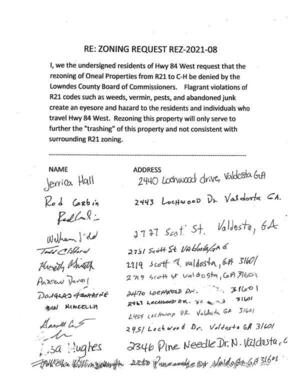 RE: ZONING REQUEST REZ-2021-08
I, we the undersigned residents of Hwy 84 West request that the
rezoning of Oneal Properties from R21 to C-H be denied by the
Lowndes County Board of Commissioners. Flagrant violations of
R21 codes such as weeds, vermin, pests, and abandoned junk
create an eyesore and hazard to the residents and individuals who
travel Hwy 84 West. Rezoning this property will only serve to
further the "trashing" of this property and not consistent with
surrounding R21 zoning.
NAME ADDRESS
Jerrica Hall 2440 Lochwood drive, Valdosta GA
Rod Corbin 2443 Lochwood Dr Valdosta GA.
2727 Scott St. Valdosta, GA
2731 Scott St Valdosta GA
2719 Scott valdosta, GA 31601
Scott St Valdosta, GA 31601
2470 LOCHWOOD DR. 31601
LOCHWOOD DR.
LOCHWOOD DR. Valdosta GA 31601
2451 Lochwood Dr. Valdosta GA 31601
Lisa Hughes 2346 Pine Needle Dr. N. Valdosta, G
Valdosta GA 31601